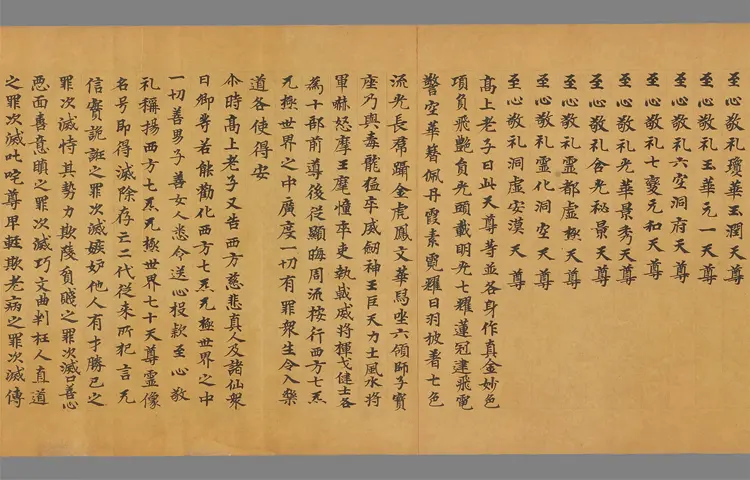 至心敬礼瓊華玉潤天尊
至心敬礼玉華元一天尊
至心敬礼六空洞府天尊
至心敬礼七變元和天尊
至心敬礼光華景秀天尊
至心敬礼含光秘景天尊
至心敬礼靈都虛极天尊
至心敬礼靈化洞空天尊
至心敬礼洞虛安漠天尊
髙上老子曰此天尊等並各身作真金妙色
項負飛艷負光頭戴明光七耀蓮冠建飛電
警空華簪佩丹霞素霓耀日羽披著七色
流光長裙躡金虎鳳文華舄坐六領師子寶
座乃與毒龍猛卒威劒神王巨天力士風水將
軍嚇怒摩王麾幢卒吏執戟威將揮戈健士各
為十部前導後從顯晦周流按行西方七炁
无極世界之中廣度一切有罪衆生令入樂
道各使得安
尒時髙上老子又告西方慈悲真人及諸仙衆
曰卿等若能勸化西方七炁无極世界之中
一切善男子善女人悉令送心投款至心敬
礼稱揚西方七炁无極世界七十天尊靈像
名号即得滅除存亡二代從来所犯言无
信實詭誑之罪次滅嫉妒他人有才勝己之
罪次滅恃其勢力欺陵貧賤之罪次滅口善心
惡面喜意瞋之罪次滅巧文曲判枉人直道
之罪次滅吐咤尊卑輕欺老病之罪次滅傳